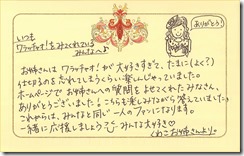 ありがとう!
いつも
ワラッチャオ!をみてくれている
みんなへ♪
お姉さんはワラッチャオ!が大好きすぎて、たまに(よく?)
仕事なのを忘れてしまうくらい楽しんじゃっていました。
ホームページでお姉さんへの質問をよせてくれたみなさん、
ありがとうございました!こちらも楽しみながら答えていました。
これからは、みなさんと同じ一人のファンになります。
一緒に応援しましょう みんな大好き♡
くわこお姉さんより。